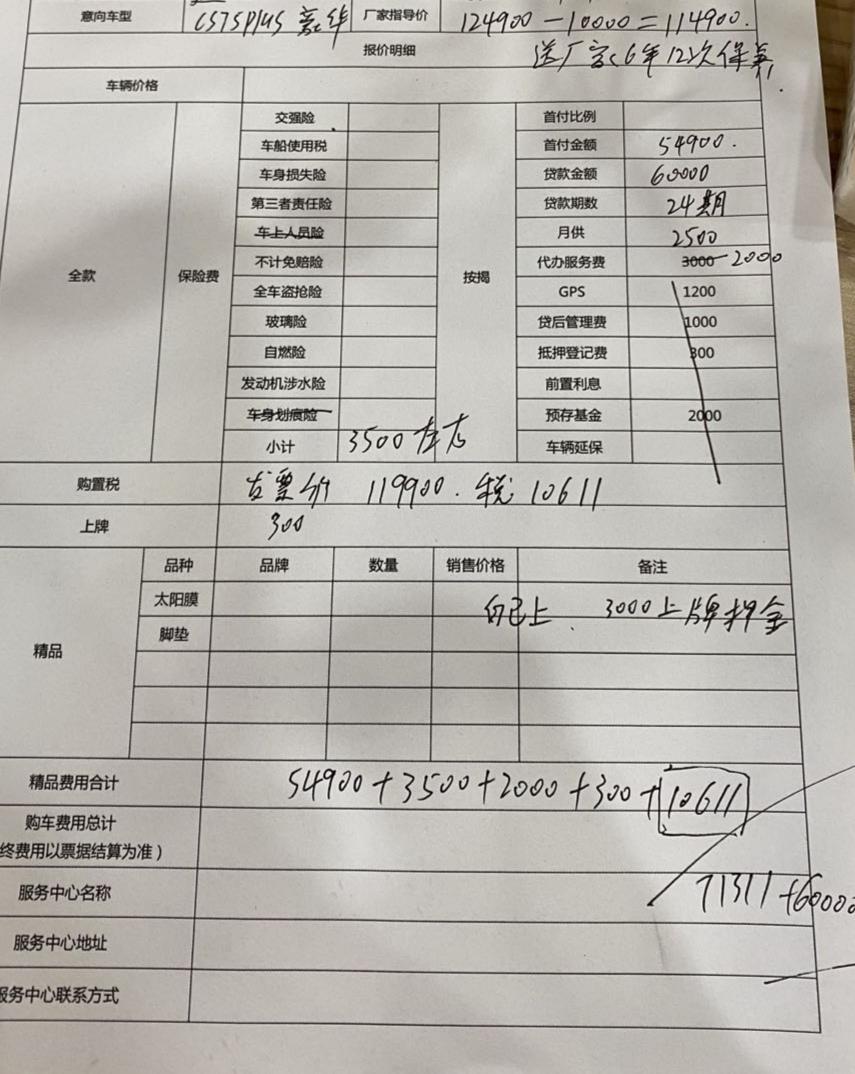 意向车型 CS75plus 豪华 厂家指导价 124900-10000=114900.
报价明细 送厂家6年12次保养.
车辆价格
全款 保险费 按揭
交强险 首付比例
车船使用税 首付金额 54900.
车身损失险 贷款金额 60000
第三者责任险 贷款期数 24期
车上人员险 月供 2500
不计免赔险 代办服务费 3000-2000
全车盗抢险 GPS 1200
玻璃险 贷后管理费 1000
自燃险 抵押登记费 300
发动机涉水险 前置利息
车身划痕险 预存基金 2000
小计 3500左右 车辆延保
购置税 发票价 119900. 税 10611
上牌 300
精品
品种 品牌 数量 销售价格 备注
太阳膜 自己上. 3000上牌押金
脚垫
精品费用合计 54900+3500+2000+300+10611
购车费用总计
终费用以票据结算为准)
服务中心名称 71311+60000
服务中心地址
服务中心联系方式